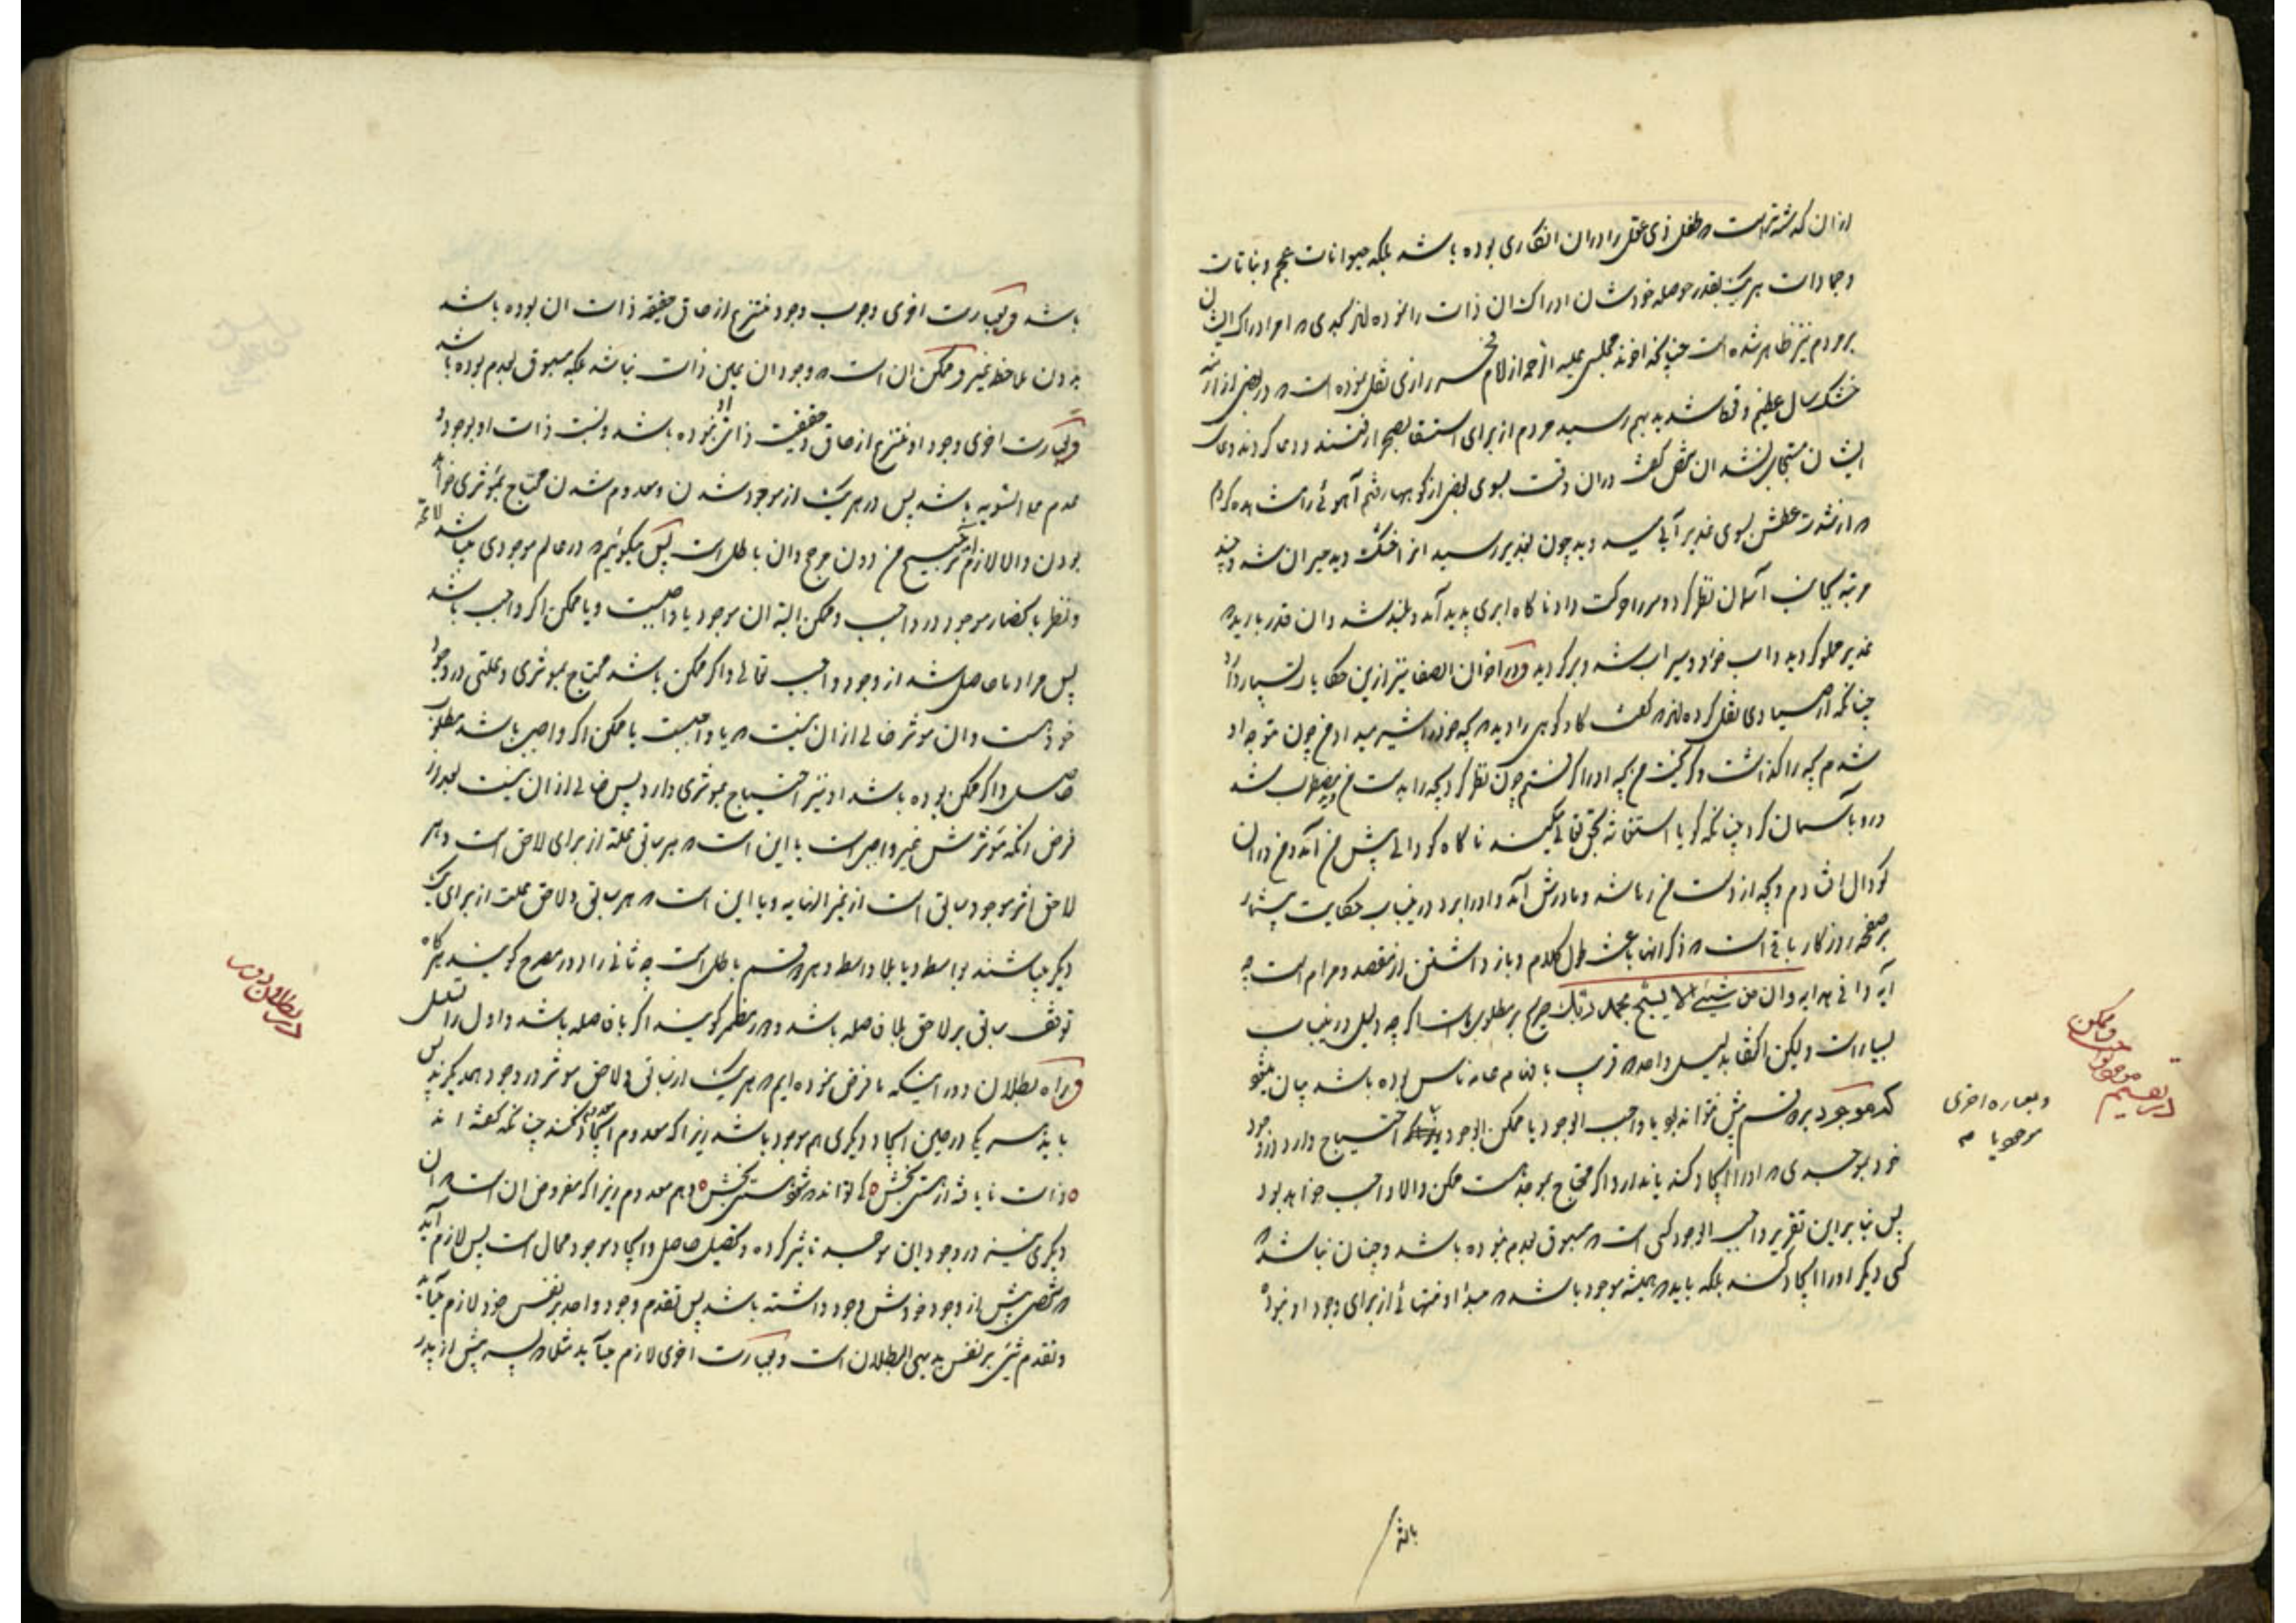 ازان که شته است که طفل ذی عقل را دران انکاری بوده باشد بلکه حیوانات عجم و نباتات
و جمادات هریک بقدر حوصله خودشان ادراک ان ذات را نموده اند که امر ادراک ایشان
بر مردم نیز ظاهر شده است چنانکه اخوند مجلسی علیه الرحمه از امام فخر رازی نقل نموده است که در بعضی از ازمنه
خشک سال عظیم و قحط شدید بهم رسید مردم از برای استسقا بصحرا رفتند و دعا کردند دعای
ایشان مستجاب نشد ان شخص گفت دران وقت بسوی بعضی از کوهها رفتم آهوئی را مشاهده کردم
که از شدت عطش بسوی غدیر آبی میدوید چون بغدیر رسید انرا خشک دید حیران شد و چند
مرتبه بجانب آسمان نظر کرد و سر را حرکت داد ناکاه ابری پدید آمد و بلند شد و ان قدر بارید که
غدیر مملو کردید و اب خورد و سیراب شد و برگردید و در اخوان الصفا نیز ازین حکایات بسیار دارد
چنانکه از صیادی نقل کرده اند که گفت گاو کوهی را دیدم که بچه خود را شیر میداد من چون متوجه او
شدم بچه را گذاشت و گریخت من بچه او را گرفتم چون نظر کرد بچه را بدست من دید مضطرب شد
و رو بآسمان کرد چنانکه گویا استغاثه بحق تعالی میکند ناکاه گودالی پیش من آمد و من دران
گودال افتادم و بچه از دست من رها شد و مادرش آمد و او را برد درین باب حکایت بیشمار
بر صفحه روزگار باقی است که ذکر انها باعث طول کلام و باز داشتن از مقصد و مرام است چه
آیه وافی هدایه و ان من شیء الا یسبح بحمده دلیل صریح بر مطلوب ماست اگر چه دلیل درین باب
بسیار است و لیکن اکتفا بدلیل واحد که قریب بافهام عامه ناس بوده باشد بیان میشود
که موجود بر دو قسم بیش نتواند بود یا واجب الوجود یا ممکن الوجود احتیاج دارد در وجود
خود بموجدی که او را ایجاد کند یا ندارد اگر محتاج بموجد است ممکن و الا واجب خواهد بود
پس بنا بر این تقریر واجب الوجود کسی است که مسبوق بعدم نبوده باشد و چنان نباشد که
کسی دیگر او را ایجاد کند بلکه باید که همیشه موجود باشد که مبدا و منتهائی از برای وجود او نبوده
و بعباره اخری
موجود یا
باشد و بعبارت اخری وجوب وجود منتزع از حاق حقیقه ذات ان بوده باشد
بدون ملاحظه غیر و ممکن ان است که وجود ان عین ذات نباشد بلکه مسبوق بعدم بوده باشد
و بعبارت اخری وجود او منتزع از حاق و حقیقت ذات او نبوده باشد و نسبت ذات او بوجود و
عدم علی السویه باشد پس در هریک از موجود شدن و معدوم شدن محتاج بمؤثری خواهد
بودن و الا لازم آید ترجیح من دون مرجح و ان باطل است پس میگوئیم که در عالم موجودی میباشد لا محاله
و نظر بانحصار موجود در واجب و ممکن البته ان موجود یا واجبست و یا ممکن اگر واجب باشد
پس مراد ما حاصل شد از وجود واجب تعالی و اگر ممکن باشد محتاج بموثری و علتی در وجود
خود هست و ان موثر خالی ازان نیست که یا واجبست یا ممکن اگر واجب باشد مطلوب
حاصل و اگر ممکن بوده باشد او نیز احتیاج بموثری دارد پس خالی ازان نیست بعد از
فرض انکه مؤثرش غیر واجب است یا این است که هر سابق علة از برای لاحق است و هر
لاحق اثر موجود سابق است الی غیر النهایه و یا این است که هر سابق و لاحق علت از برای یک
دیگر میباشند بواسطه و یا بلا واسطه و هر دو قسم باطل است چه ثانی را دور مصرح گویند هرگاه
توقف سابق بر لاحق بلا فاصله باشد و دور مضمر گویند اگر با فاصله باشد و اول را تسلسل
و راه بطلان دور اینکه ما فرض نموده ایم که هریک از سابق و لاحق موثر در وجود همدیگرند پس
باید هر یک در حین ایجاد دیگری هم موجود باشد زیرا که معدوم ایجاد نکند چنانکه گفته اند
ذات نایافته از هستی بخش کی تواند که شود هستی بخش و هم معدوم زیرا که مفروض ان است که ان
دیگری نیز در وجود این موجد تاثیر کرده و تحصیل حاصل و ایجاد موجود محال است پس لازم آید
که شخصی پیش از وجود خودش وجود داشته باشد پس تقدم وجود واحد بر نفس خود لازم میآید
و تقدم شیء بر نفس بدیهی البطلان است و بعبارت اخری لازم میآید مثلا که پسر پیش از پدر
در بطلان دور